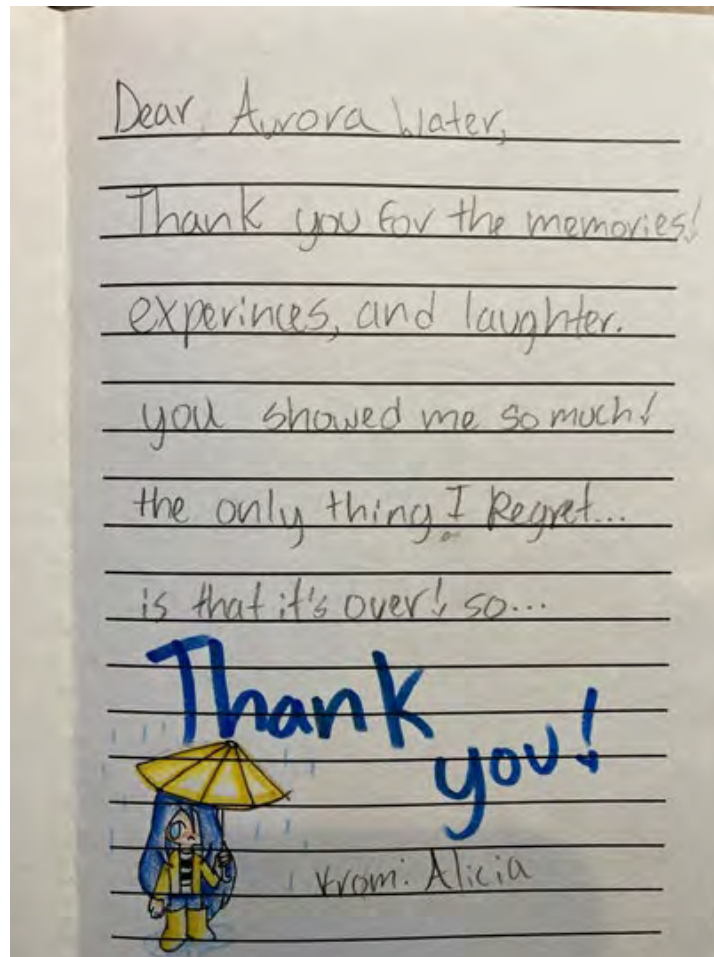 Dear, Aurora Water,
Thank you for the memories!
experinces, and laughter.
you showed me so much!
the only thing I Regret...
is that it's over! so...
Thank
you!
From: Alicia